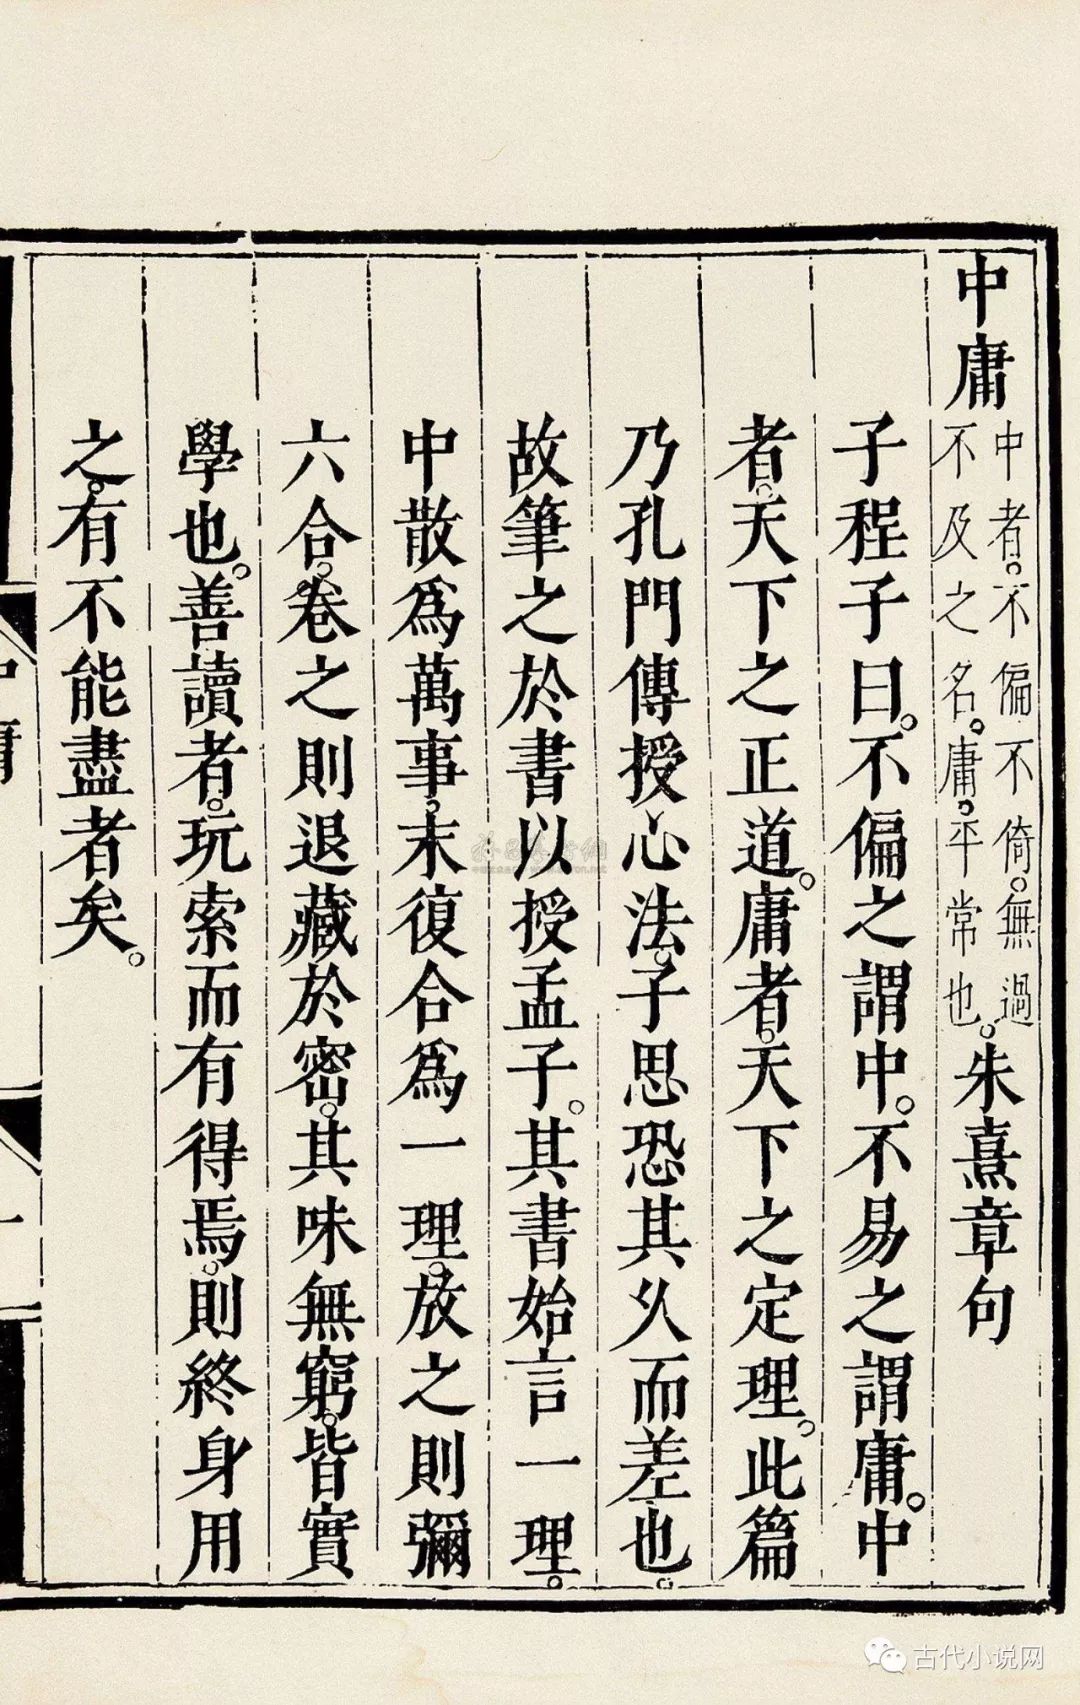 中庸
中者。不偏不倚。無過
不及之名。庸。平常也。
朱熹章句
子程子曰。不偏之謂中。不易之謂庸。中
者。天下之正道。庸者。天下之定理。此篇
乃孔門傳授心法。子思恐其久而差也。
故筆之於書以授孟子。其書始言一理。
中散為萬事。末復合為一理。放之則彌
六合。卷之則退藏於密。其味無窮。皆實
學也。善讀者。玩索而有得焉。則終身用
之。有不能盡者矣。
中庸
一
古代小说网